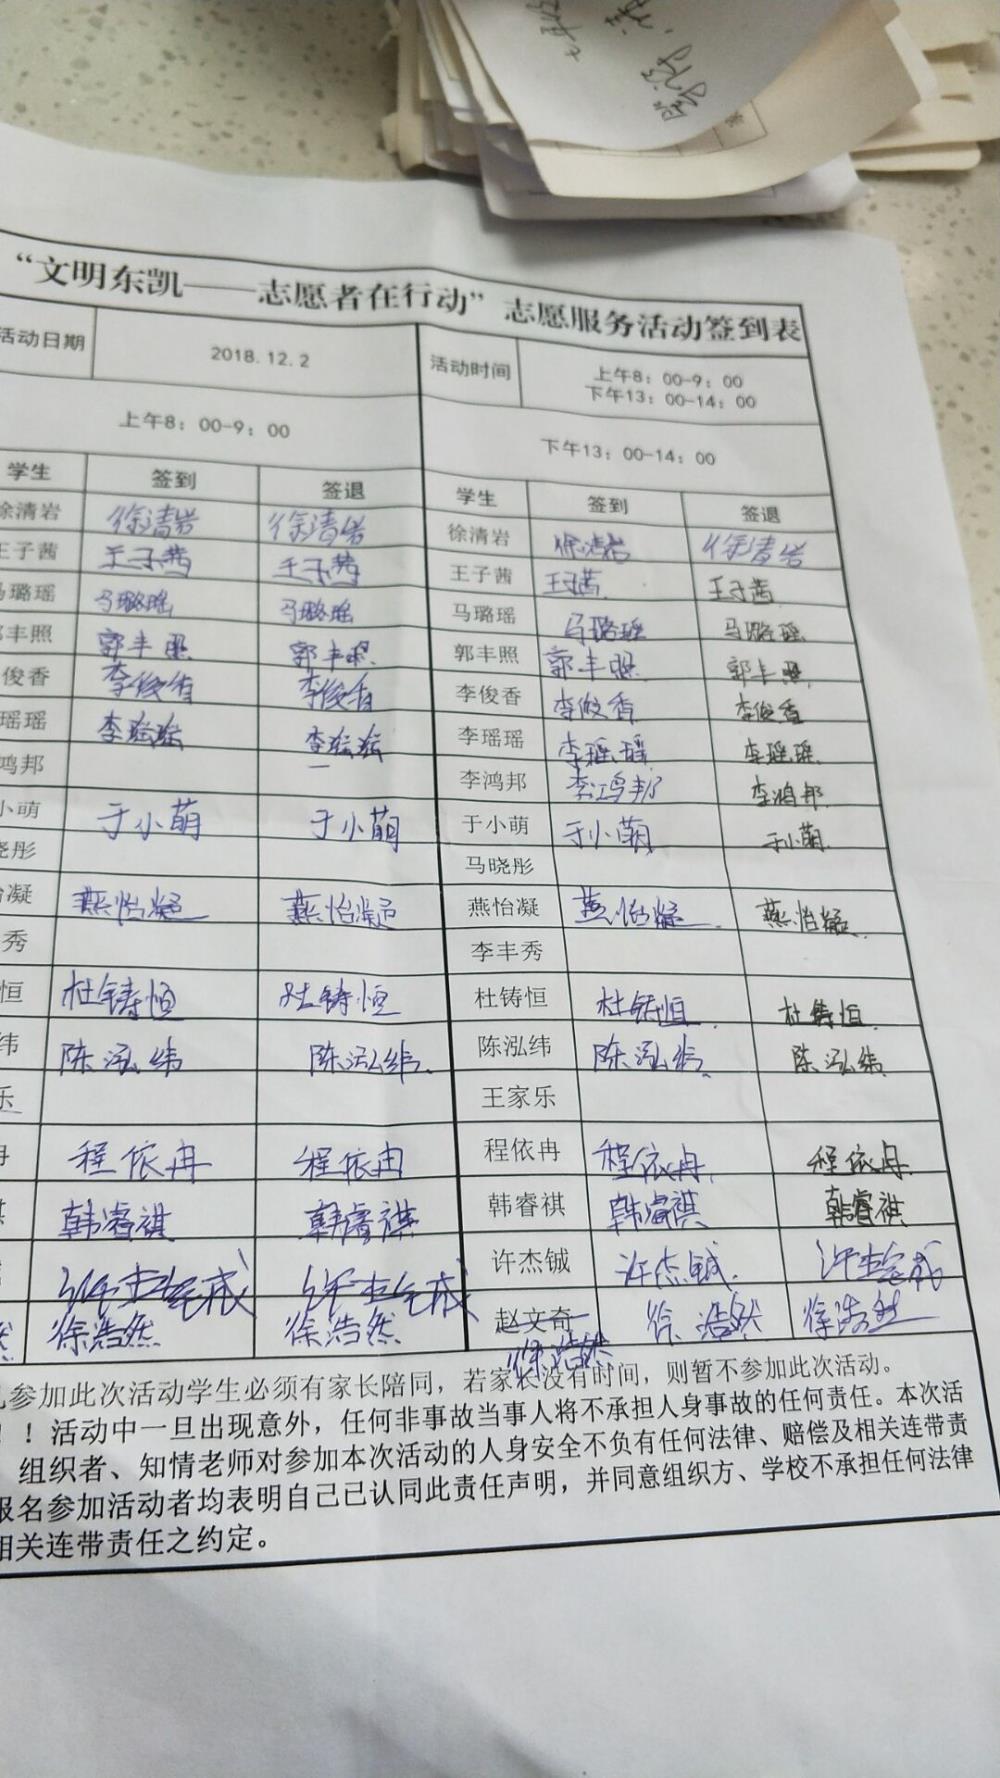 “文明东凯——志愿者在行动”志愿服务活动签到表
活动日期 2018.12.2 活动时间 上午8：00-9：00
下午13：00-14：00
上午8：00-9：00 下午13：00-14：00
学生 签到 签退 学生 签到 签退
徐清岩 徐清岩 徐清岩 徐清岩 徐清岩 徐清岩
王子茜 王子茜 王子茜 王子茜 王子茜 王子茜
马璐瑶 马璐瑶 马璐瑶 马璐瑶 马璐瑶 马璐瑶
郭丰照 郭丰照 郭丰照 郭丰照 郭丰照 郭丰照
俊香 李俊香 李俊香 李俊香 李俊香 李俊香
瑶瑶 李瑶瑶 李瑶瑶 李瑶瑶 李瑶瑶 李瑶瑶
鸿邦 李鸿邦 李鸿邦 李鸿邦
小萌 于小萌 于小萌 于小萌 于小萌 于小萌
晓彤 马晓彤
怡凝 燕怡凝 燕怡凝 燕怡凝 燕怡凝 燕怡凝
秀 李丰秀
恒 杜铸恒 杜铸恒 杜铸恒 杜铸恒 杜铸恒
纬 陈泓纬 陈泓纬 陈泓纬 陈泓纬 陈泓纬
乐 王家乐
冉 程依冉 程依冉 程依冉 程依冉 程依冉
祺 韩睿祺 韩睿祺 韩睿祺 韩睿祺 韩睿祺
许杰铖 许杰铖 许杰铖 许杰铖 许杰铖
然 徐浩然 徐浩然 赵文奇 徐浩然 徐浩然
徐浩然
参加此次活动学生必须有家长陪同，若家长没有时间，则暂不参加此次活动。
！活动中一旦出现意外，任何非事故当事人将不承担人身事故的任何责任。本次活
组织者、知情老师对参加本次活动的人身安全不负有任何法律、赔偿及相关连带责
报名参加活动者均表明自己已认同此责任声明，并同意组织方、学校不承担任何法律
相关连带责任之约定。